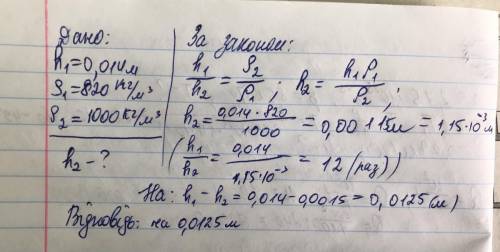 Дано:
h₁=0,014м
ρ₁=820 кг/м³
ρ₂=1000 кг/м³
h₂ - ?
За законом:
h₁/h₂ = ρ₂/ρ₁ ; h₂ = h₁ρ₁/ρ₂ ;
h₂ = 0,014·820/1000 = 0,00115м = 1,15·10⁻³м
(h₁/h₂ = 0,014/1,15·10⁻³ = 12 (раз))
На: h₁ - h₂ = 0,014-0,0015 = 0,0125(м)
Відповідь: на 0,0125 м